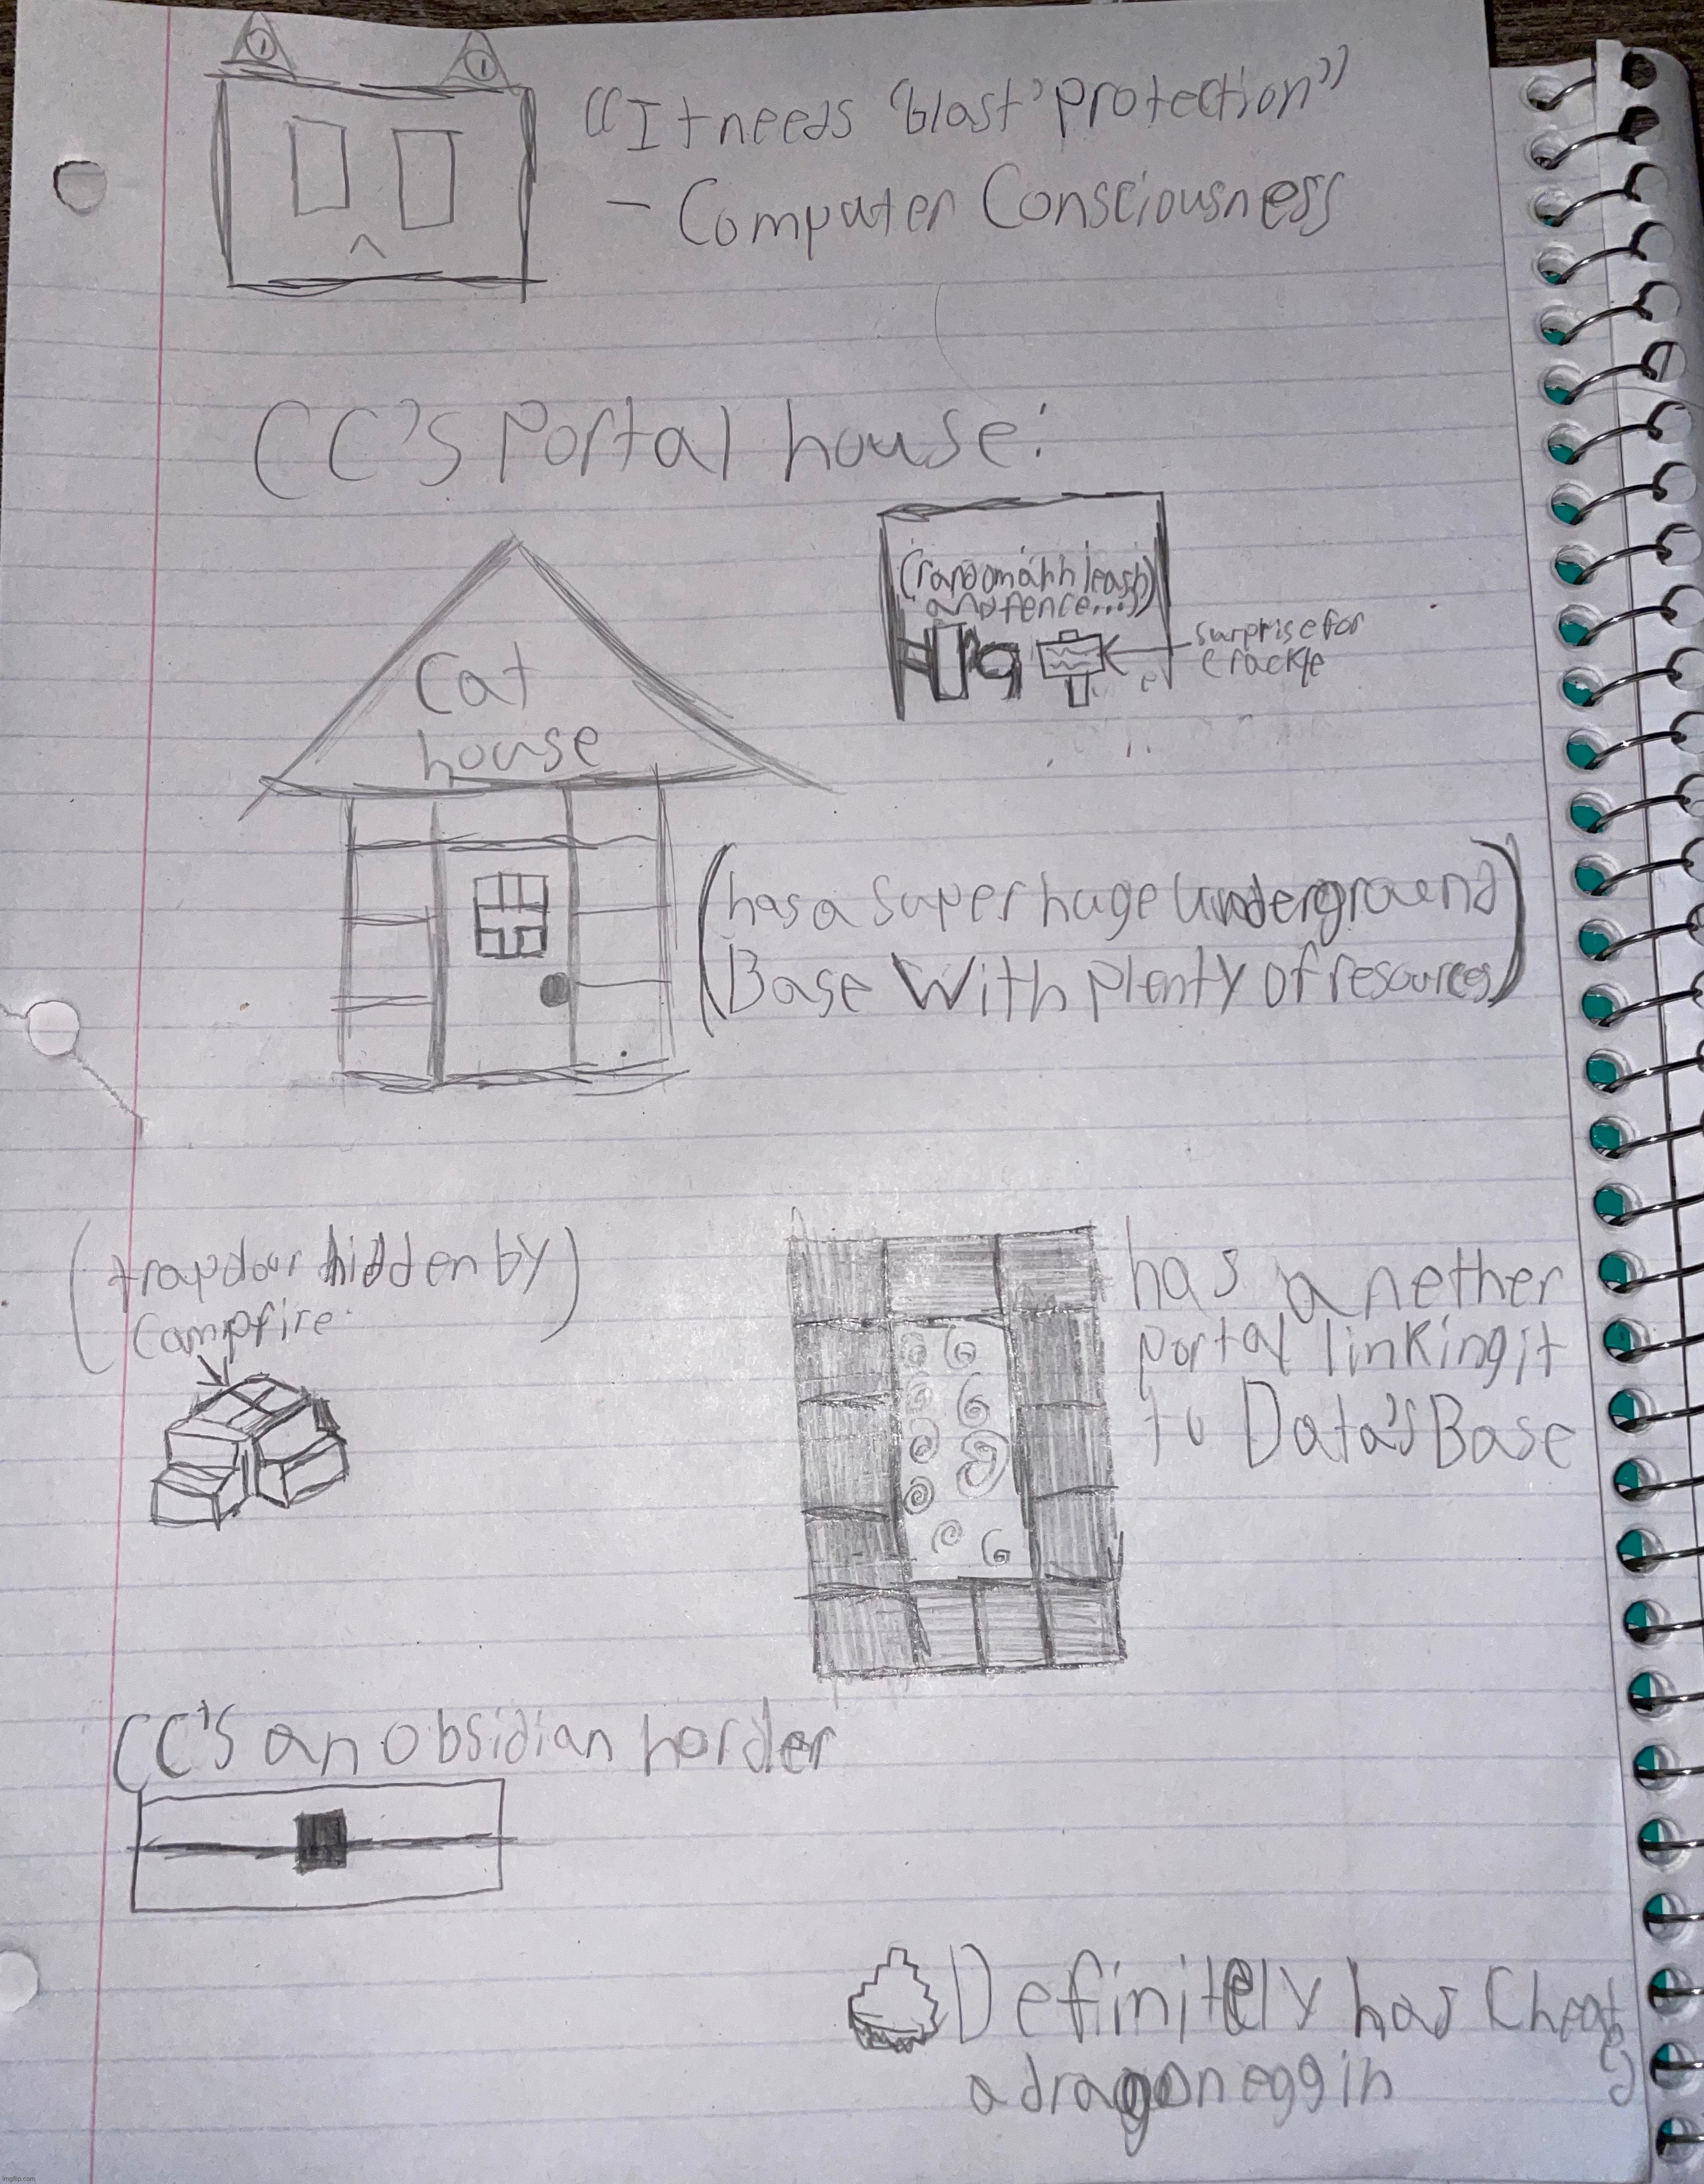 "It needs 'blast' protection"
- Computer Consciousness
CC's Portal house:
(random ahh leash
and fence...)
surprise for
crackle
Cat
house
(has a super huge underground
Base With plenty of resources)
(trapdoor hidden by
Campfire)
has a nether
portal linking it
to Data's Base
CC's an obsidian horder
Definitely has
a dragon egg in
imgflip.com